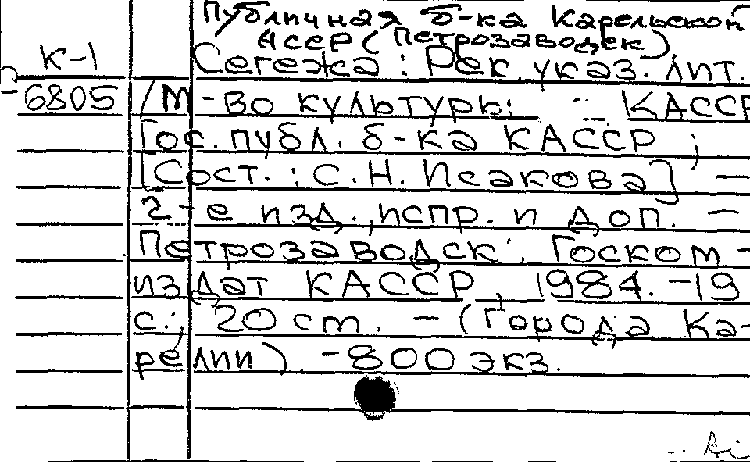 Публичная б-ка Карельской
АССР (Петрозаводск)
К-1
Сегежа : Рек. указ. лит.
6805 /М-во культуры КАССР
Гос. публ. б-ка КАССР ;
[Сост. : С. Н. Исакова] —
2-е изд., испр. и доп. —
Петрозаводск : Госком-
издат КАССР, 1984. -19
с.; 20 cm. — (Города Ка-
релии) -800 экз.